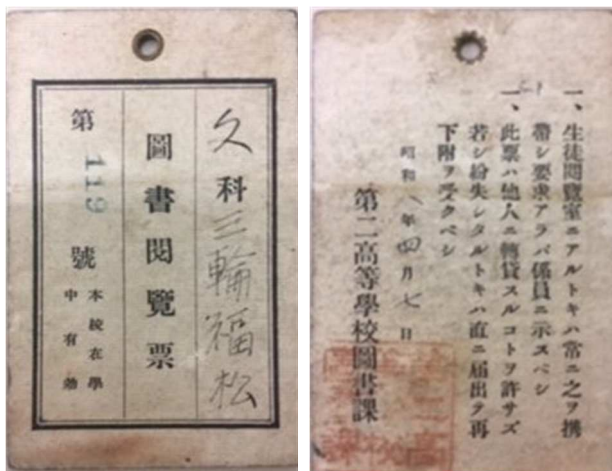 文科三輪福松
圖書閲覽票
第119號
本校在學
中有効
一、生徒閲覽室ニアルトキハ常ニ之ヲ携
帶シ要求アラバ係員ニ示スベシ
一、此票ハ他人ニ轉貸スルコトヲ許サズ
若シ紛失シタルトキハ直ニ届出テ再
下附ヲ受クベシ
昭和八年四月七日
第二高等學校圖書課